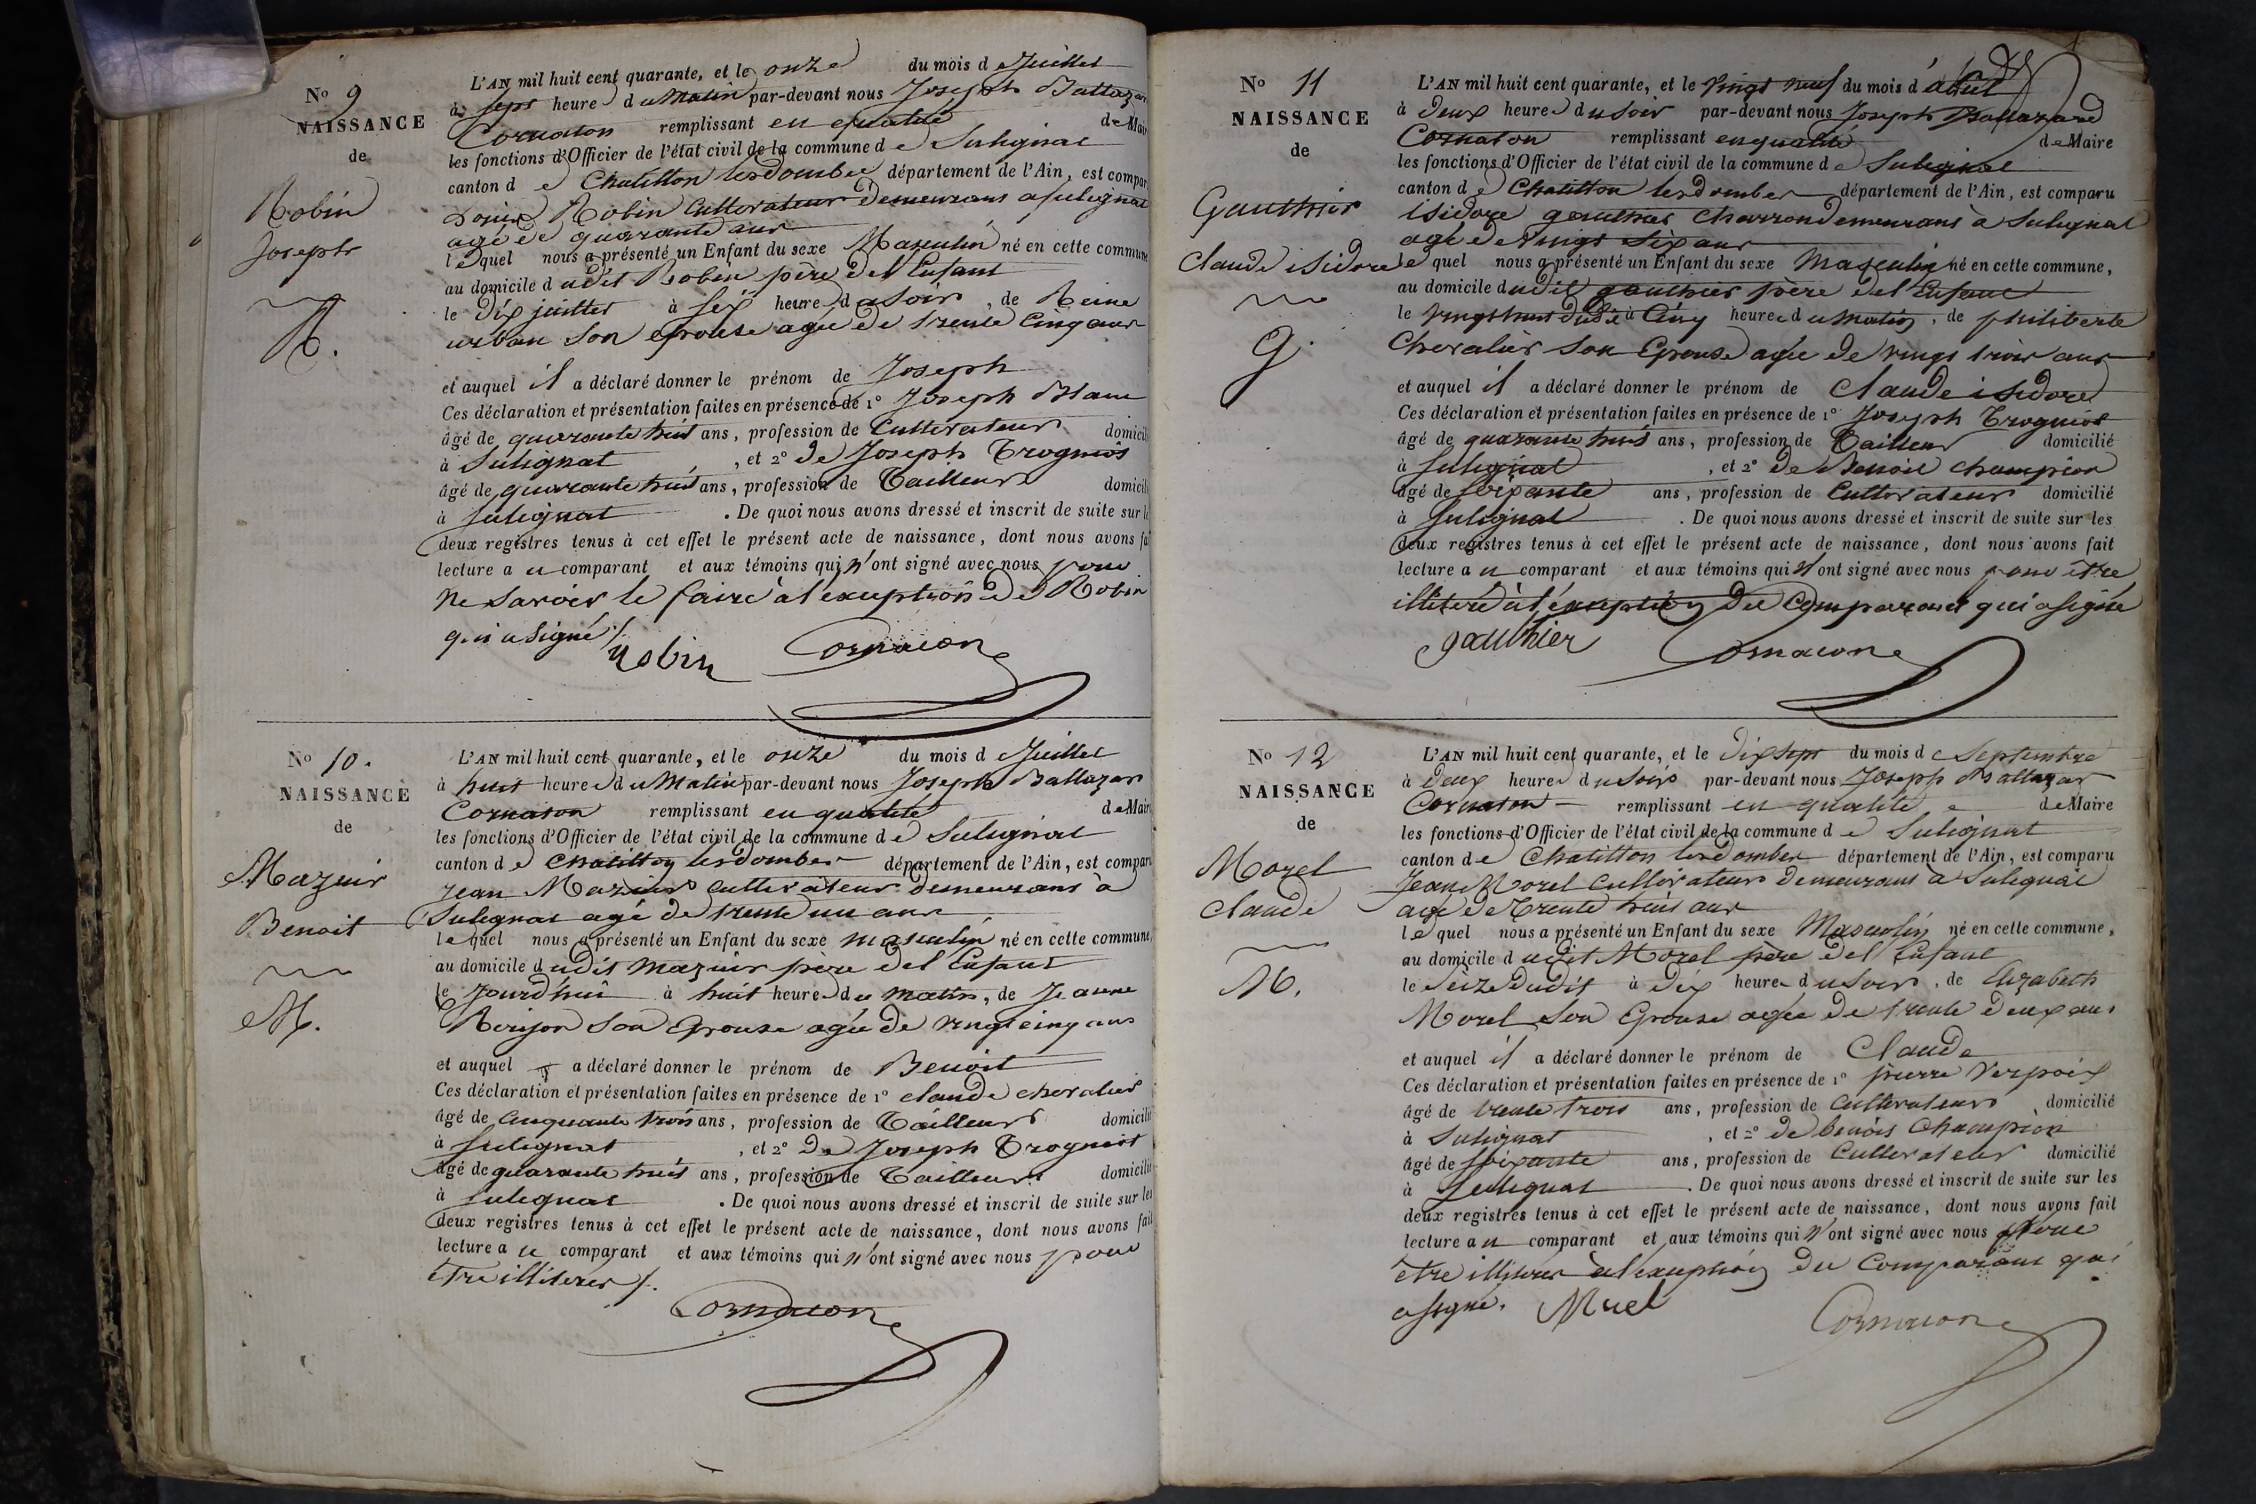 N° 9
NAISSANCE
de
Robin
Joseph
R.
L'AN mil huit cent quarante, et le onze du mois de Juillet
à sept heure du Matin par-devant nous Joseph Baltazar
Cornaton remplissant en qualité de Mair
les fonctions d'Officier de l'état civil de la commune de Sulignat
canton de Chatillon lesdombes département de l'Ain, est compar
Robin Cultivateur demeurant a Sulignat
agé de quarante ans
lequel nous a présenté un Enfant du sexe Masculin né en cette commune
au domicile dudit Robin père del Enfant
le dix juillet à six heure du soir, de Reine
urban son epouse agée de trente cinq ans
et auquel il a déclaré donner le prénom de Joseph
Ces déclaration et présentation faites en présence de 1° Joseph Blanc
âgé de quarante huit ans, profession de Cultivateur domicili
à Sulignat, et 2° de Joseph Trogniot
âgé de quarante huit ans, profession de Tailleur domicili
à Sulignat. De quoi nous avons dressé et inscrit de suite sur le
deux registres tenus à cet effet le présent acte de naissance, dont nous avons fai
lecture au comparant et aux témoins qui n'ont signé avec nous pour
ne savoir le faire à l'exeuption de Robin
qui a signé
Robin Cornaton
N° 10.
NAISSANCE
de
Mazuir
Benoit
M.
L'AN mil huit cent quarante, et le onze du mois de Juillet
à huit heure du Matin par-devant nous Joseph Baltazar
Cornaton remplissant en qualité de Mair
les fonctions d'Officier de l'état civil de la commune de Sulignat
canton de Chatillon lesdombes département de l'Ain, est compar
Jean Mazuir Cultivateur demeurant à
Sulignat agé de trente un ans
lequel nous a présenté un Enfant du sexe masculin né en cette commune,
au domicile dudit Mazuir père del Enfant
le Jourd'hui à huit heure du matin, de Jeanne
son Epouse agée de vingt cinq ans
et auquel il a déclaré donner le prénom de Benoit
Ces déclaration et présentation faites en présence de 1° claude chevalier
âgé de Cinquante trois ans, profession de Tailleur domicili
à Sulignat, et 2° De Joseph Trogniot
âgé de quarante huit ans, profession de Tailleur domicili
à Sulignat. De quoi nous avons dressé et inscrit de suite sur les
deux registres tenus à cet effet le présent acte de naissance, dont nous avons fait
lecture au comparant et aux témoins qui n'ont signé avec nous pour
être illiterés
Cornaton
N° 11
NAISSANCE
de
Gauthier
Claude isidore
G.
L'AN mil huit cent quarante, et le vingt neuf du mois d'Aout
à deux heure du soir par-devant nous Joseph Baltazard
Cornaton remplissant en qualité de Maire
les fonctions d'Officier de l'état civil de la commune de Sulignat
canton de Chatillon lesdombes département de l'Ain, est comparu
isidore gauthier Charron demeurant à Sulignat
agé de vingt six ans
lequel nous a présenté un Enfant du sexe Masculin né en cette commune,
au domicile dudit gauthier père del Enfant
le vingt huit dudit à Cinq heure du matin, de philiberte
Chevalier son Epouse agée de vingt trois ans
et auquel il a déclaré donner le prénom de Claude isidore
Ces déclaration et présentation faites en présence de 1° Joseph Trogniot
âgé de quarante huit ans, profession de Tailleur domicilié
à Sulignat, et 2° de Benoit Champion
âgé de soixante ans, profession de Cultivateur domicilié
à Sulignat. De quoi nous avons dressé et inscrit de suite sur les
deux registres tenus à cet effet le présent acte de naissance, dont nous avons fait
lecture au comparant et aux témoins qui n'ont signé avec nous pour être
illiteré à l'exeuption du Comparant qui a signé
gauthier Cornaton
N° 12
NAISSANCE
de
Morel
Claude
M.
L'AN mil huit cent quarante, et le dix sept du mois de Septembre
à deux heure du soir par-devant nous Joseph Baltazar
Cornaton remplissant en qualité de Maire
les fonctions d'Officier de l'état civil de la commune de Sulignat
canton de Chatillon lesdombes département de l'Ain, est comparu
Jean Morel Cultivateur demeurant à Sulignat
agé de Trente huit ans
lequel nous a présenté un Enfant du sexe Masculin né en cette commune,
au domicile dudit Morel père del Enfant
le Seize dudit à dix heure du soir, de Elizabeth
Morel son Epouse agée de trente deux ans
et auquel il a déclaré donner le prénom de Claude
Ces déclaration et présentation faites en présence de 1° pierre Verpoix
âgé de trente trois ans, profession de Cultivateur domicilié
à Sulignat, et 2° de benoit Champion
âgé de soixante ans, profession de Cultivateur domicilié
à Sulignat. De quoi nous avons dressé et inscrit de suite sur les
deux registres tenus à cet effet le présent acte de naissance, dont nous avons fait
lecture au comparant et aux témoins qui n'ont signé avec nous pour
être illiterés à l'exeuption du Comparant qui
a signé. Cornaton